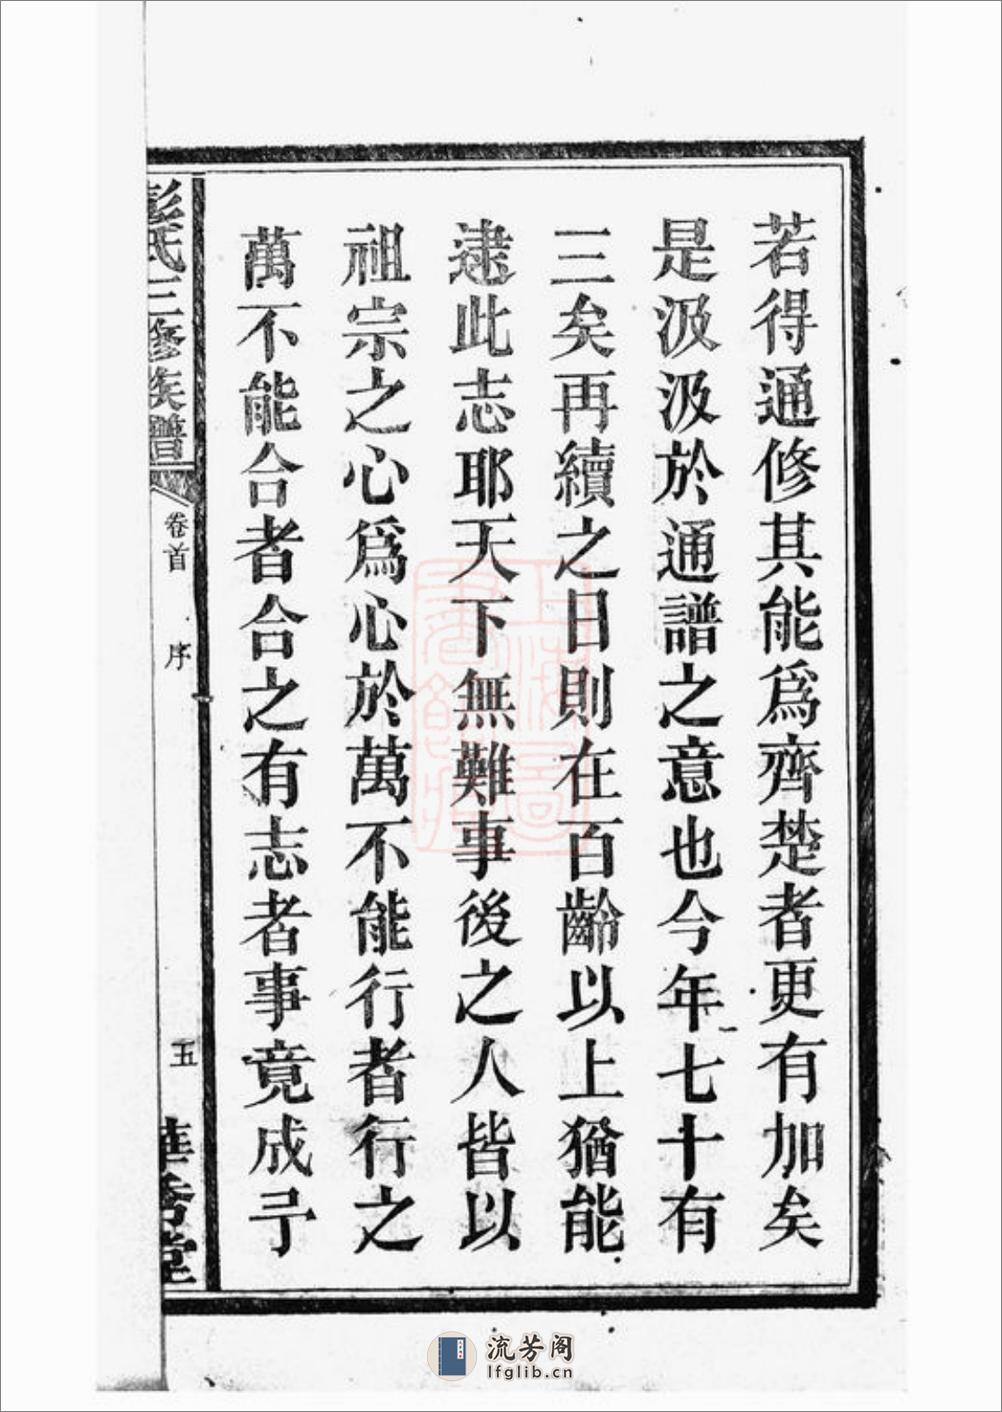 若得通修其能爲齊楚者更有加矣
是汲汲於通譜之意也今年七十有
三矣再續之目則在百齡以上猶能
逮此志耶天下無難事後之人皆以
祖宗之心爲心於萬不能行者行之
萬不能合者合之有志者事竟成予
彭氏三修族譜
卷首
序
五
華秀堂
流芳阁
lfglib.cn